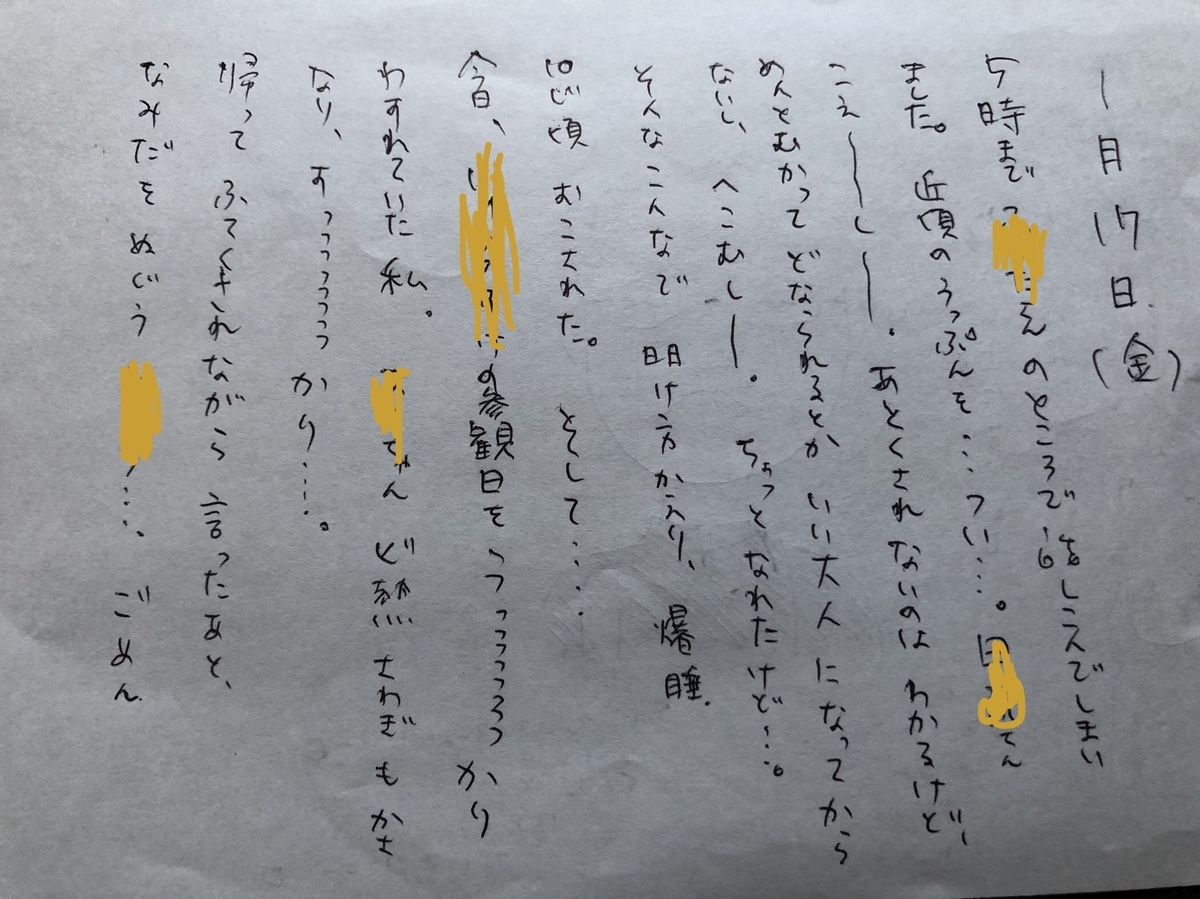 1月17日(金)
5時まで さんのところで話しこんでしまい
ました。近頃のうっぷんを…つい…。 さん
こえーしー。あとくされないのはわかるけど、
めんとむかってどなられるとかいい大人になってから
ないし、へこむしー。ちょっとなれたけど…。
そんなこんなで 明け方かえり、爆睡。
10じ頃 おこされた。そして・・・・
今日、 の参観日をうっっっっっっかり
わすれていた私。 ちゃん ど熱さわぎもかさ
なり、すっっっっっかり…。
帰ってふてくされながら言ったあと、
なみだをぬぐう …。ごめん